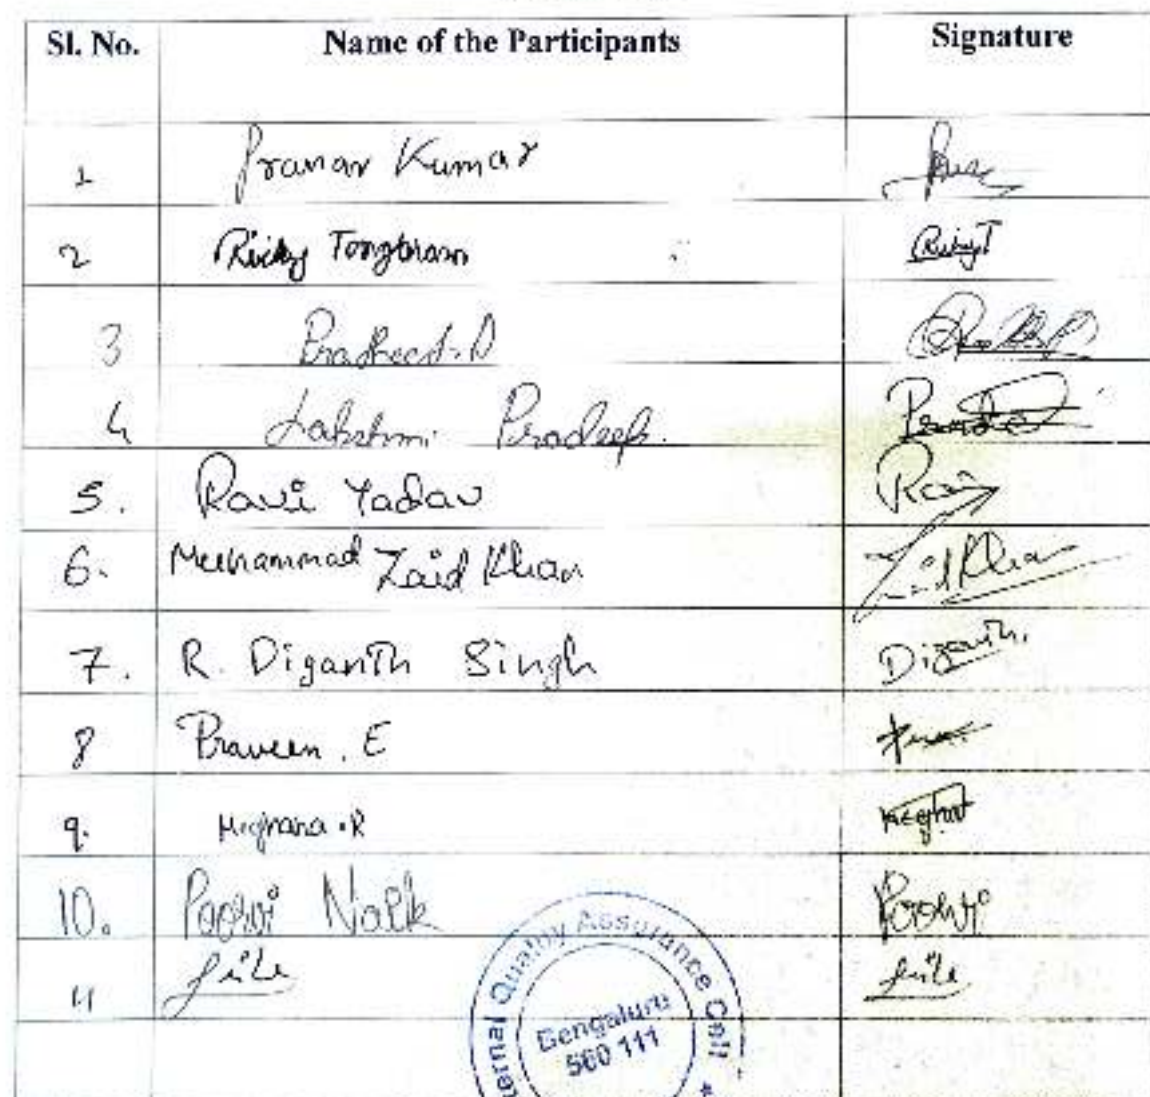 Sl. No. Name of the Participants Signature
1 Pranav Kumar
2 Ricky Tongbram RickyT
3
4 Lakshmi Pradeep.
5. Ravi Yadav Ravi
6. Muhammad Zaid Khan Zaid Khan
7. R. Diganth Singh Diganth.
8 Praveen . E
9. Meghana . R Meghna
10. Poorvi Naik Poorvi
11
Internal Quality Assurance Cell
Bengaluru
560 111